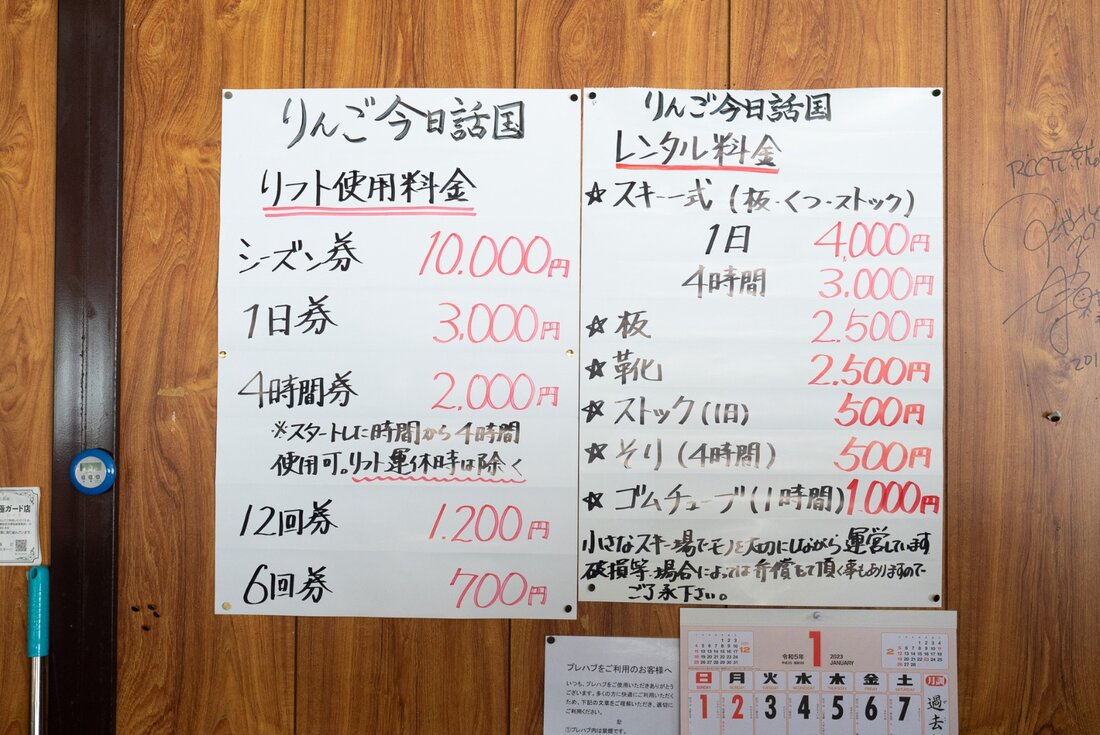 りんご今日話国
リフト使用料金
シーズン券 10.000円
1日券 3.000円
4時間券 2.000円
※スタートした時間から4時間
使用可。リフト運休時は除く
12回券 1.200円
6回券 700円
りんご今日話国
レンタル料金
☆スキー一式(板・くつ・ストック)
1日 4,000円
4時間 3.000円
☆板 2.500円
☆靴 2.500円
☆ストック(1日) 500円
☆そり(4時間) 500円
☆ゴムチューブ(1時間) 1.000円
小さなスキー場でモノを大切にしながら運営しています
破損等、場合によっては弁償して頂く事もありますので
ご了承下さい。
プレハブをご利用のお客様へ
いつも、プレハブをご使用いただきありがとう
ございます。多くの方に快適にご利用いただく
ため、下記の文章をご理解いただき、適切に
ご利用ください。
記
①プレハブ内は禁煙です。
12
令和5年
1
2023
JANUARY
2
日 月 火 水 木 金 土
SUNDAY MONDAY TUESDAY WEDNESDAY THURSDAY FRIDAY SATURDAY
1 2 3 4 5 6 7
月訓
過去
ガード店